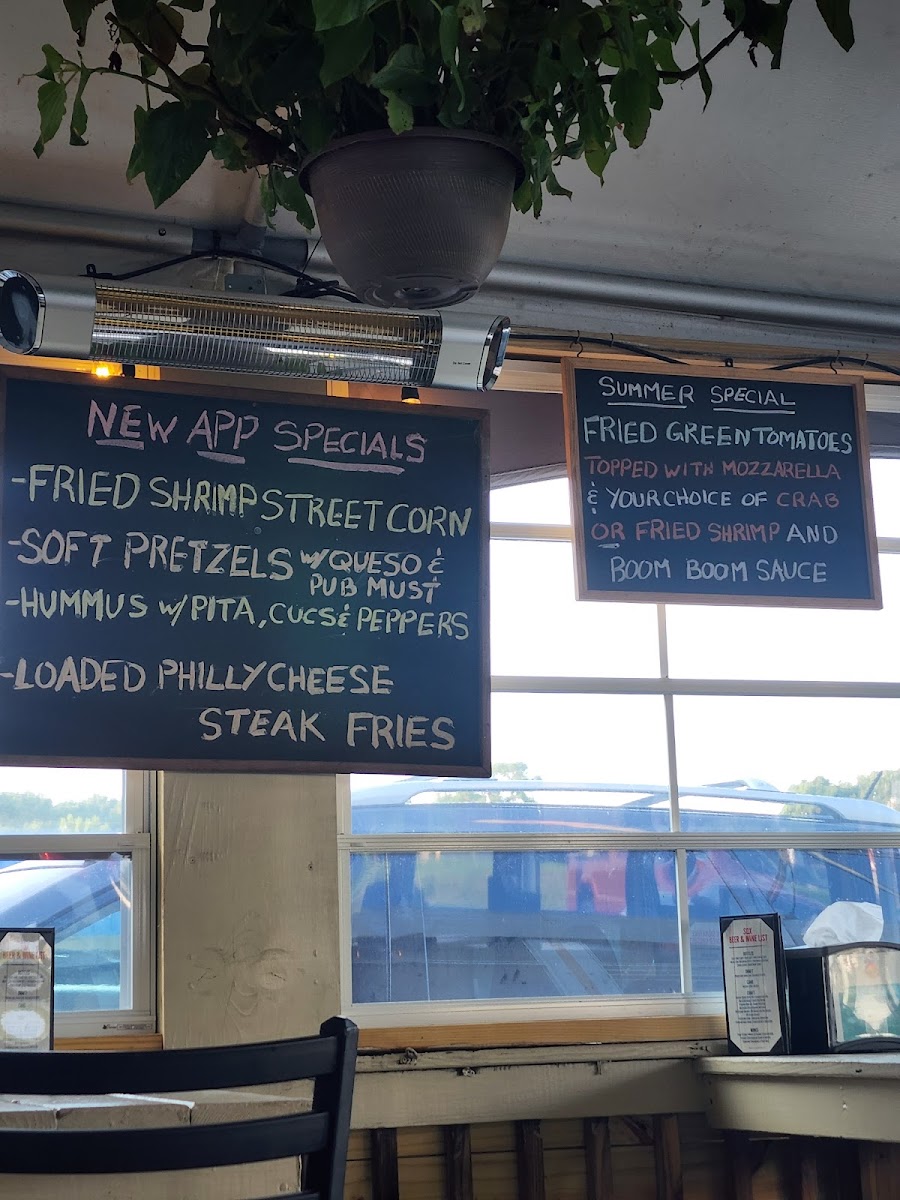 NEW APP SPECIALS
-FRIED SHRIMP STREET CORN
-SOFT PRETZELS W/QUESO &
PUB MUST
-HUMMUS W/PITA, CUCS & PEPPERS
-LOADED PHILLY CHEESE
STEAK FRIES
SUMMER SPECIAL
FRIED GREEN TOMATOES
TOPPED WITH MOZZARELLA
& YOUR CHOICE OF CRAB
OR FRIED SHRIMP AND
BOOM BOOM SAUCE
BEER & WINE LIST
BEER & WINE LIST